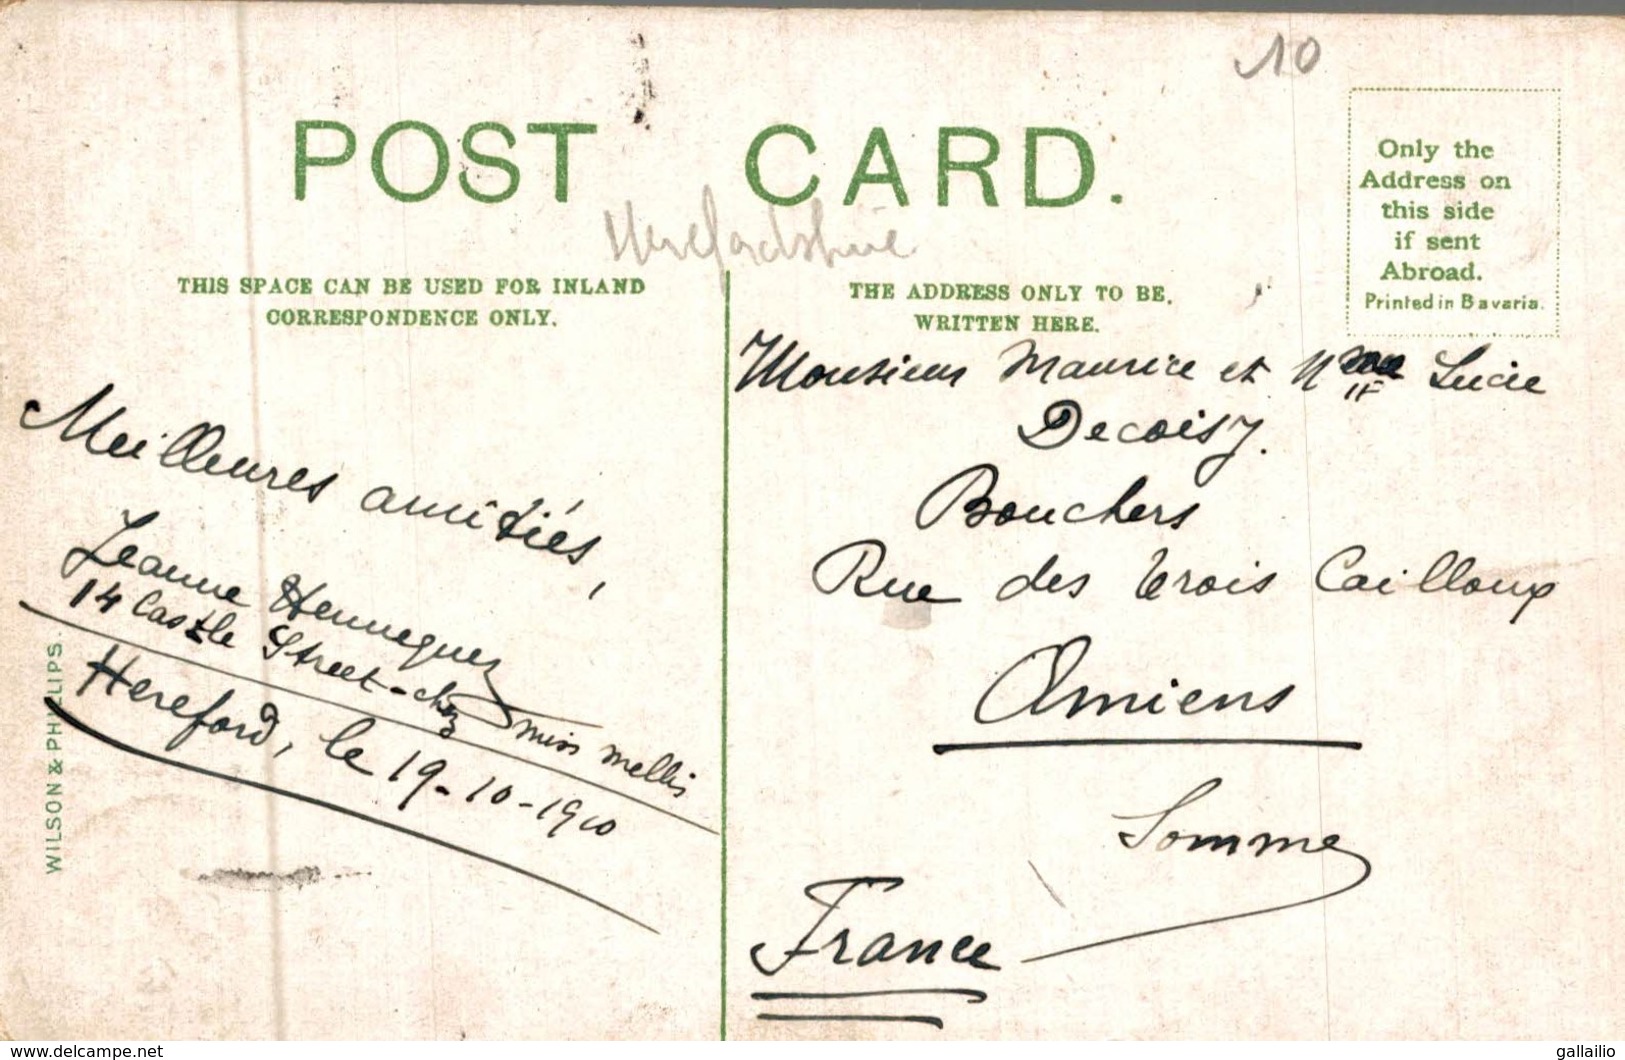 10
POST CARD.
Herefordshire
Only the
Address on
this side
if sent
Abroad.
Printed in Bavaria.
THIS SPACE CAN BE USED FOR INLAND
CORRESPONDENCE ONLY.
THE ADDRESS ONLY TO BE.
WRITTEN HERE.
Meilleures amitiés,
Jeanne Hennequez
14 Castle Street - chez miss mellis
Hereford, le 19-10-1910
WILSON & PHILLIPS.
Monsieur Maurice et Lucie
Decoisy.
Bouchers
Rue des trois Cailloux
Amiens
Somme
France
www.delcampe.net
gallailio